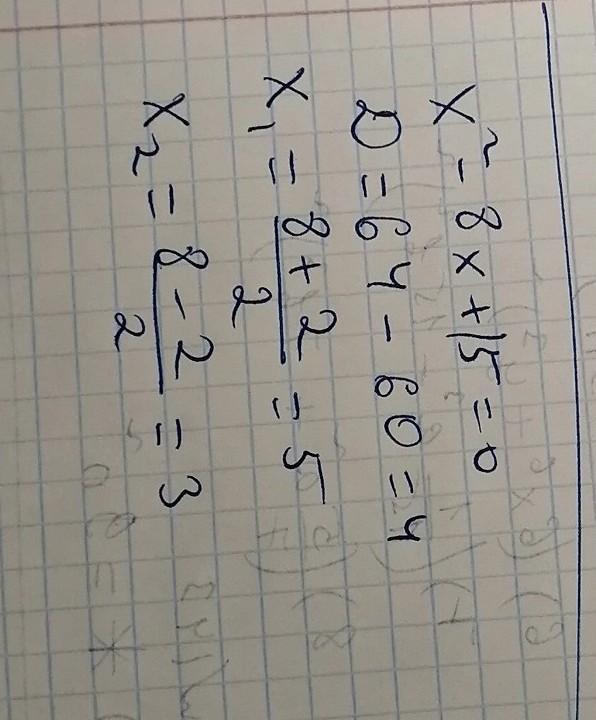 x² - 8x + 15 = 0
D = 64 - 60 = 4
x₁ = (8 + 2)/2 = 5
x₂ = (8 - 2)/2 = 3